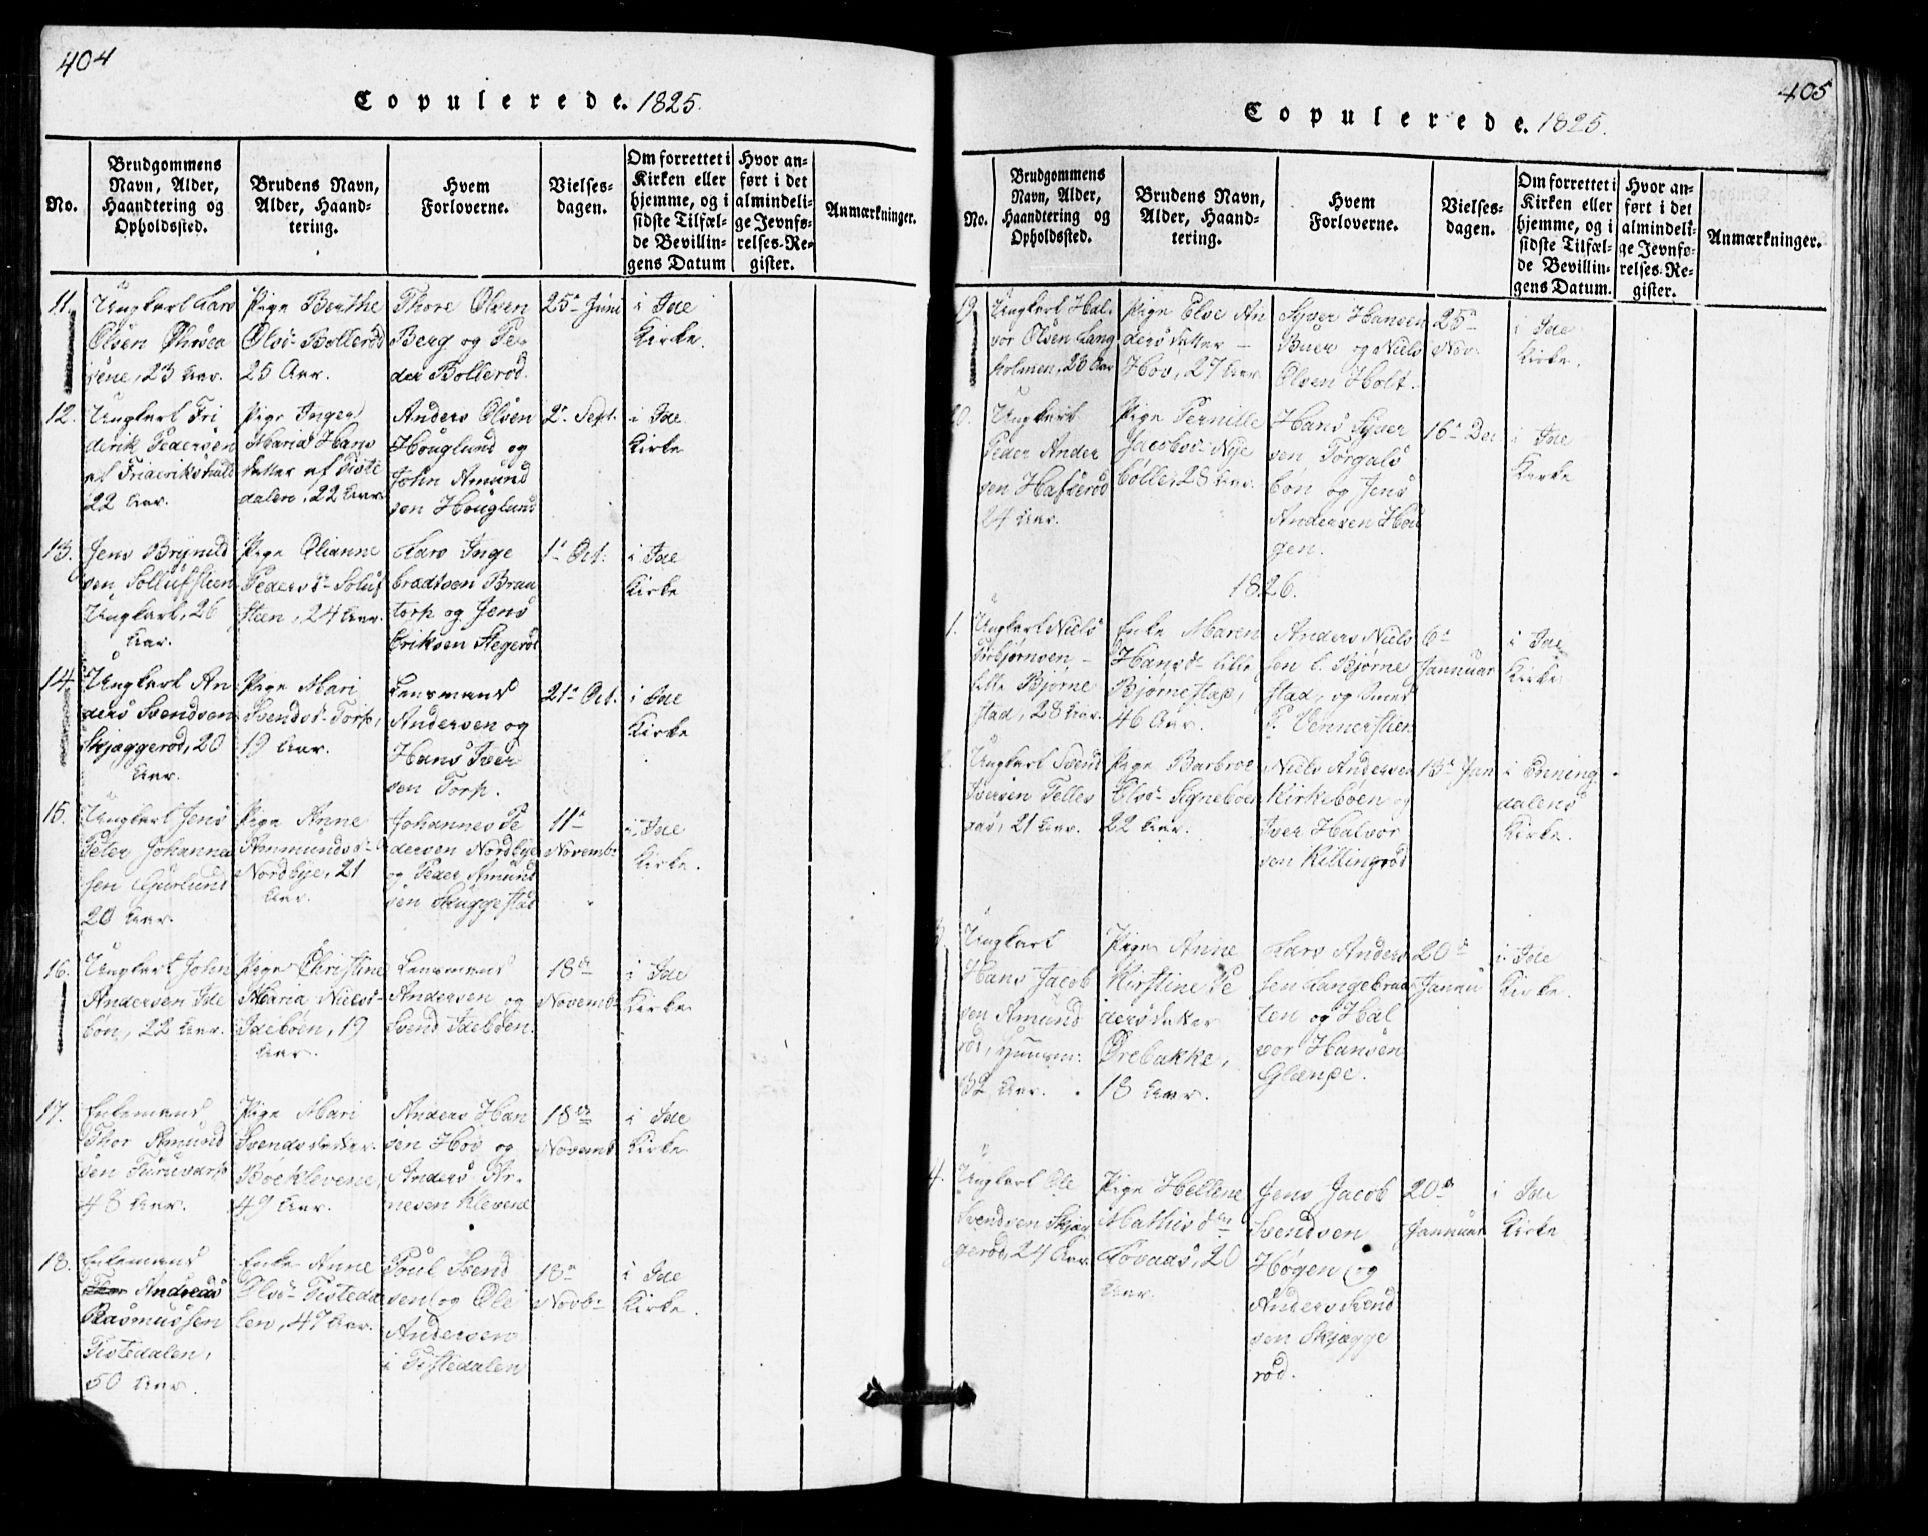 404
Copulerede. 1825.
No.
Brudgommens
Navn, Alder,
Haandtering og
Opholdssted.
Brudens Navn,
Alder, Haand-
tering.
Hvem
Forloverne.
Vielses-
dagen.
Om forrettet i
Kirken eller
hjemme, og i
sidste Tilfæl-
de Bevillin-
gens Datum
Hvor an-
ført i det
almindeli-
ge Jevnfø-
relses-Re-
gister.
Anmærkninger.
11.
Ungkarl Lars
Olsen
23 Aar.
Pige Berthe
Olsd. Bollerød
25 Aar.
Thore Olsen
Berg og Pe-
der Bollerød.
25de Juni
i Ide
Kirke.
12.
Ungkarl Fri
derik Pedersen
af Friderikshald
22 Aar.
Pige Inger
Maria Hans
datter af Tiste
dalen, 22 Aar.
Anders Olsen
Houglund og
John Amund
sen Houglund
2den Sept.
i Ide
Kirke
13.
Jens Brynild
sen Solluffsteen
Ungkarl, 26
Aar.
Pige Olianne
Pedersdr Soluf
steen, 24 Aar.
Lars Inge
bradtsen Brau
torp og Jens
Eriksen Stegerød
1ste Oct.
i Ide
Kirke
14.
Ungkarl An
ders Svendsen
Skjæggerød, 20
Aar.
Pige Mari
Svendsd. Torp,
19 Aar.
Lensmand
Andersen og
Hans Iver
sen Torp.
21de Oct.
i Ide
Kirke
15.
Ungkarl Jens
Peter Johanne
sen
20 Aar.
Pige Anne
Nordbye, 21
Aar.
Johannes Pe
dersen Nordbye
og Peder Amund
sen Skuggestad
11te
Novembr
i Ide
Kirke.
16.
Ungkarl John
Andersen Ide
bøn, 22 Aar.
Pige Christine
Maria Nielsd.
Idebøen, 19
Aar.
Lensmand
Andersen og
Svend Idebøen.
18de
Novembr
i Ide
Kirke
17.
Enkemand
Thor Amund
sen
48 Aar.
Pige Mari
Svendsdatter
Bøeklevene,
49 Aar.
Anders Han
sen Hov og
Anders Ar-
nesen Klevene
18de
Novemb
i Ide
Kirke
18.
Enkemand
Thor Andreas
Rasmussen
Tistedalen,
50 Aar.
Enke Anne
Olsd. Tisteda
len, 47 Aar.
Poul Svend
sen og Ole
Andersen
i Tistedalen
18de
Novbr
i Ide
Kirke.
405
Copulerede. 1825.
No.
Brudgommens
Navn, Alder,
Haandtering og
Opholdssted.
Brudens Navn,
Alder, Haand-
tering.
Hvem
Forloverne.
Vielses-
dagen.
Om forrettet i
Kirken eller
hjemme, og i
sidste Tilfæl-
de Bevillin-
gens Datum.
Hvor an-
ført i det
almindeli-
ge Jevnfø-
relses-Re-
gister.
Anmærkninger.
19.
Ungkarl Hal-
vor Olsen Lang
holmen, 23 Aar
Pige Else An
dersdatter
Hov, 27 Aar.
Syver Hansen
Buer og Niels
Olsen Holt.
25de
Nov.
i Ide
Kirke.
20.
Ungkarl
Peder Ander
sen Hafserød
24 Aar.
Pige Pernille
Jacobsd. Nye
bølle, 28 Aar.
Hans Syver
sen Torgals
bøn og Jens
Andersen Hou
gen.
16de Dec
i Ide
Kirke
1826.
1.
Ungkarl Niels
Torbjørnsen
lille Bjørne
stad, 28 Aar.
Enke Maren
Hansd. lille
Bjørnestad,
46 Aar.
Anders Niels
sen l. Bjørne
stad, og Smed
P. Vennersteen
6te
Januar
i Ide
Kirke
2.
Ungkarl Svend
Iversen Telles
aas, 21 Aar.
Pige Barbroe
Olsd. Signebøen
22 Aar.
Niels Andersen
Kirkebøen og
Iver Halvor
sen Killingrød
13de Jan
i Enning
dalens
Kirke.
3.
Ungkarl
Hans Jacob
sen Amund
rød, Huusm:
32 Aar.
Pige Anne
Kirstine Pe
dersdatter
Ørebakke,
18 Aar.
Lars Anders
sen Langebraa
ten og Hal
vor Hansen
Glænge.
20de
Januar
i Ide
Kirke.
4.
Ungkarl Ole
Svendsen Skjæg
gerød, 24 Aar
Pige Hellene
Mathisdtr
20
Aar.
Jens Jacob
Svendsen
Høgen og
Anders Svend
sen Skjægge
rød.
20de
Januar
i Ide
Kirke